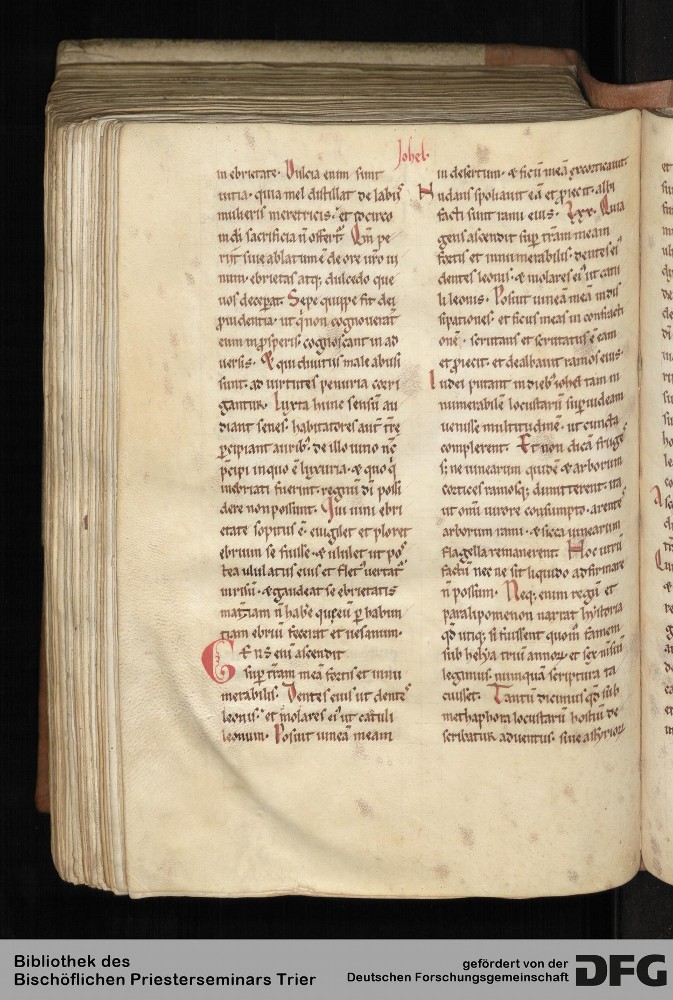 Johel.
in ebrietate. Dulcia enim sunt
uitia. quia mel distillat de labiis
mulieris meretricis. et pro eo
in di sacrificia n̄ offert
riit siue ablatum ē de ore uro ui
num. ebrietas atq; dulcedo que
uos deceperat. Sepe quippe fit dei
puidentia. ut qui non cognouerāt
eum in prosperis. cognoscant in ad
uersis. Et qui diuitiis male abusi
sunt. ad uirtutes penuria coeri
gantur. Iuxta hunc sensū au
diant senes. habitatores aut tre
pcipiant aurib; de illo uino
pcipi in quo ē luxuria. et quo q̄
inebriati fuerint. regnū di possi
dere non possunt. Qui uini ebri
etate sopitus ē. euigilet et ploret
ebrium se fuisse. et ululet ut pos
tea ululatus eius et fletus uertat
in risū. et gaudeat se ebrietatis
mat̄iam n̄ habe
tiam ebriū fecerat et uesanum.
GENS enī ascendit
sup t̄ram meā fortis et innu
merabilis. Dentes eius ut dentes
leonis. et molares ei ut catuli
leonum. Posuit uineā meam
in desertum. et ficū meā excorticauit.
Nudans spoliauit eā et proiecit. albi
facti sunt rami eius. Lxx. Quia
gens ascendit sup t̄ram meam
fortis et innumerabilis. dentes ei
dentes leonis. et molares ei ut catu
li leonis. Posuit uineā meā in dis
sipationes. et ficus meas in confracti
onē. scrutans et scrutatus ē eam
et proiecit. et dealbauit ramos eius.
Iudei putant in dieb; iohel tam in
numerabilē locustarū sup iudeam
uenisse multitudinē. ut cuncta
complerent. Et non dicā fruges
s; ne uinearum quidē et arborum
cortices ramosq; dimitterent. ita
ut omī uirore consumpto. arentes
arborum rami. et sicca uinearum
flagella remanerent. Hoc utrū
factū nec ne sit liquido adfirmare
n̄ possum. Neq; enim regū et
paralipomenon narrat hystoria
qd utiq; si fuissent quom famem
sub helya triū annoꝝ et sex mīsiū
legimus. numquā scriptura ta
cuisset. Tantū dicimus qd sub
methaphora locustarū hostiū de
scribatur aduentus. siue assyrioꝝ
Bibliothek des
Bischöflichen Priesterseminars Trier
gefördert von der
Deutschen Forschungsgemeinschaft
DFG